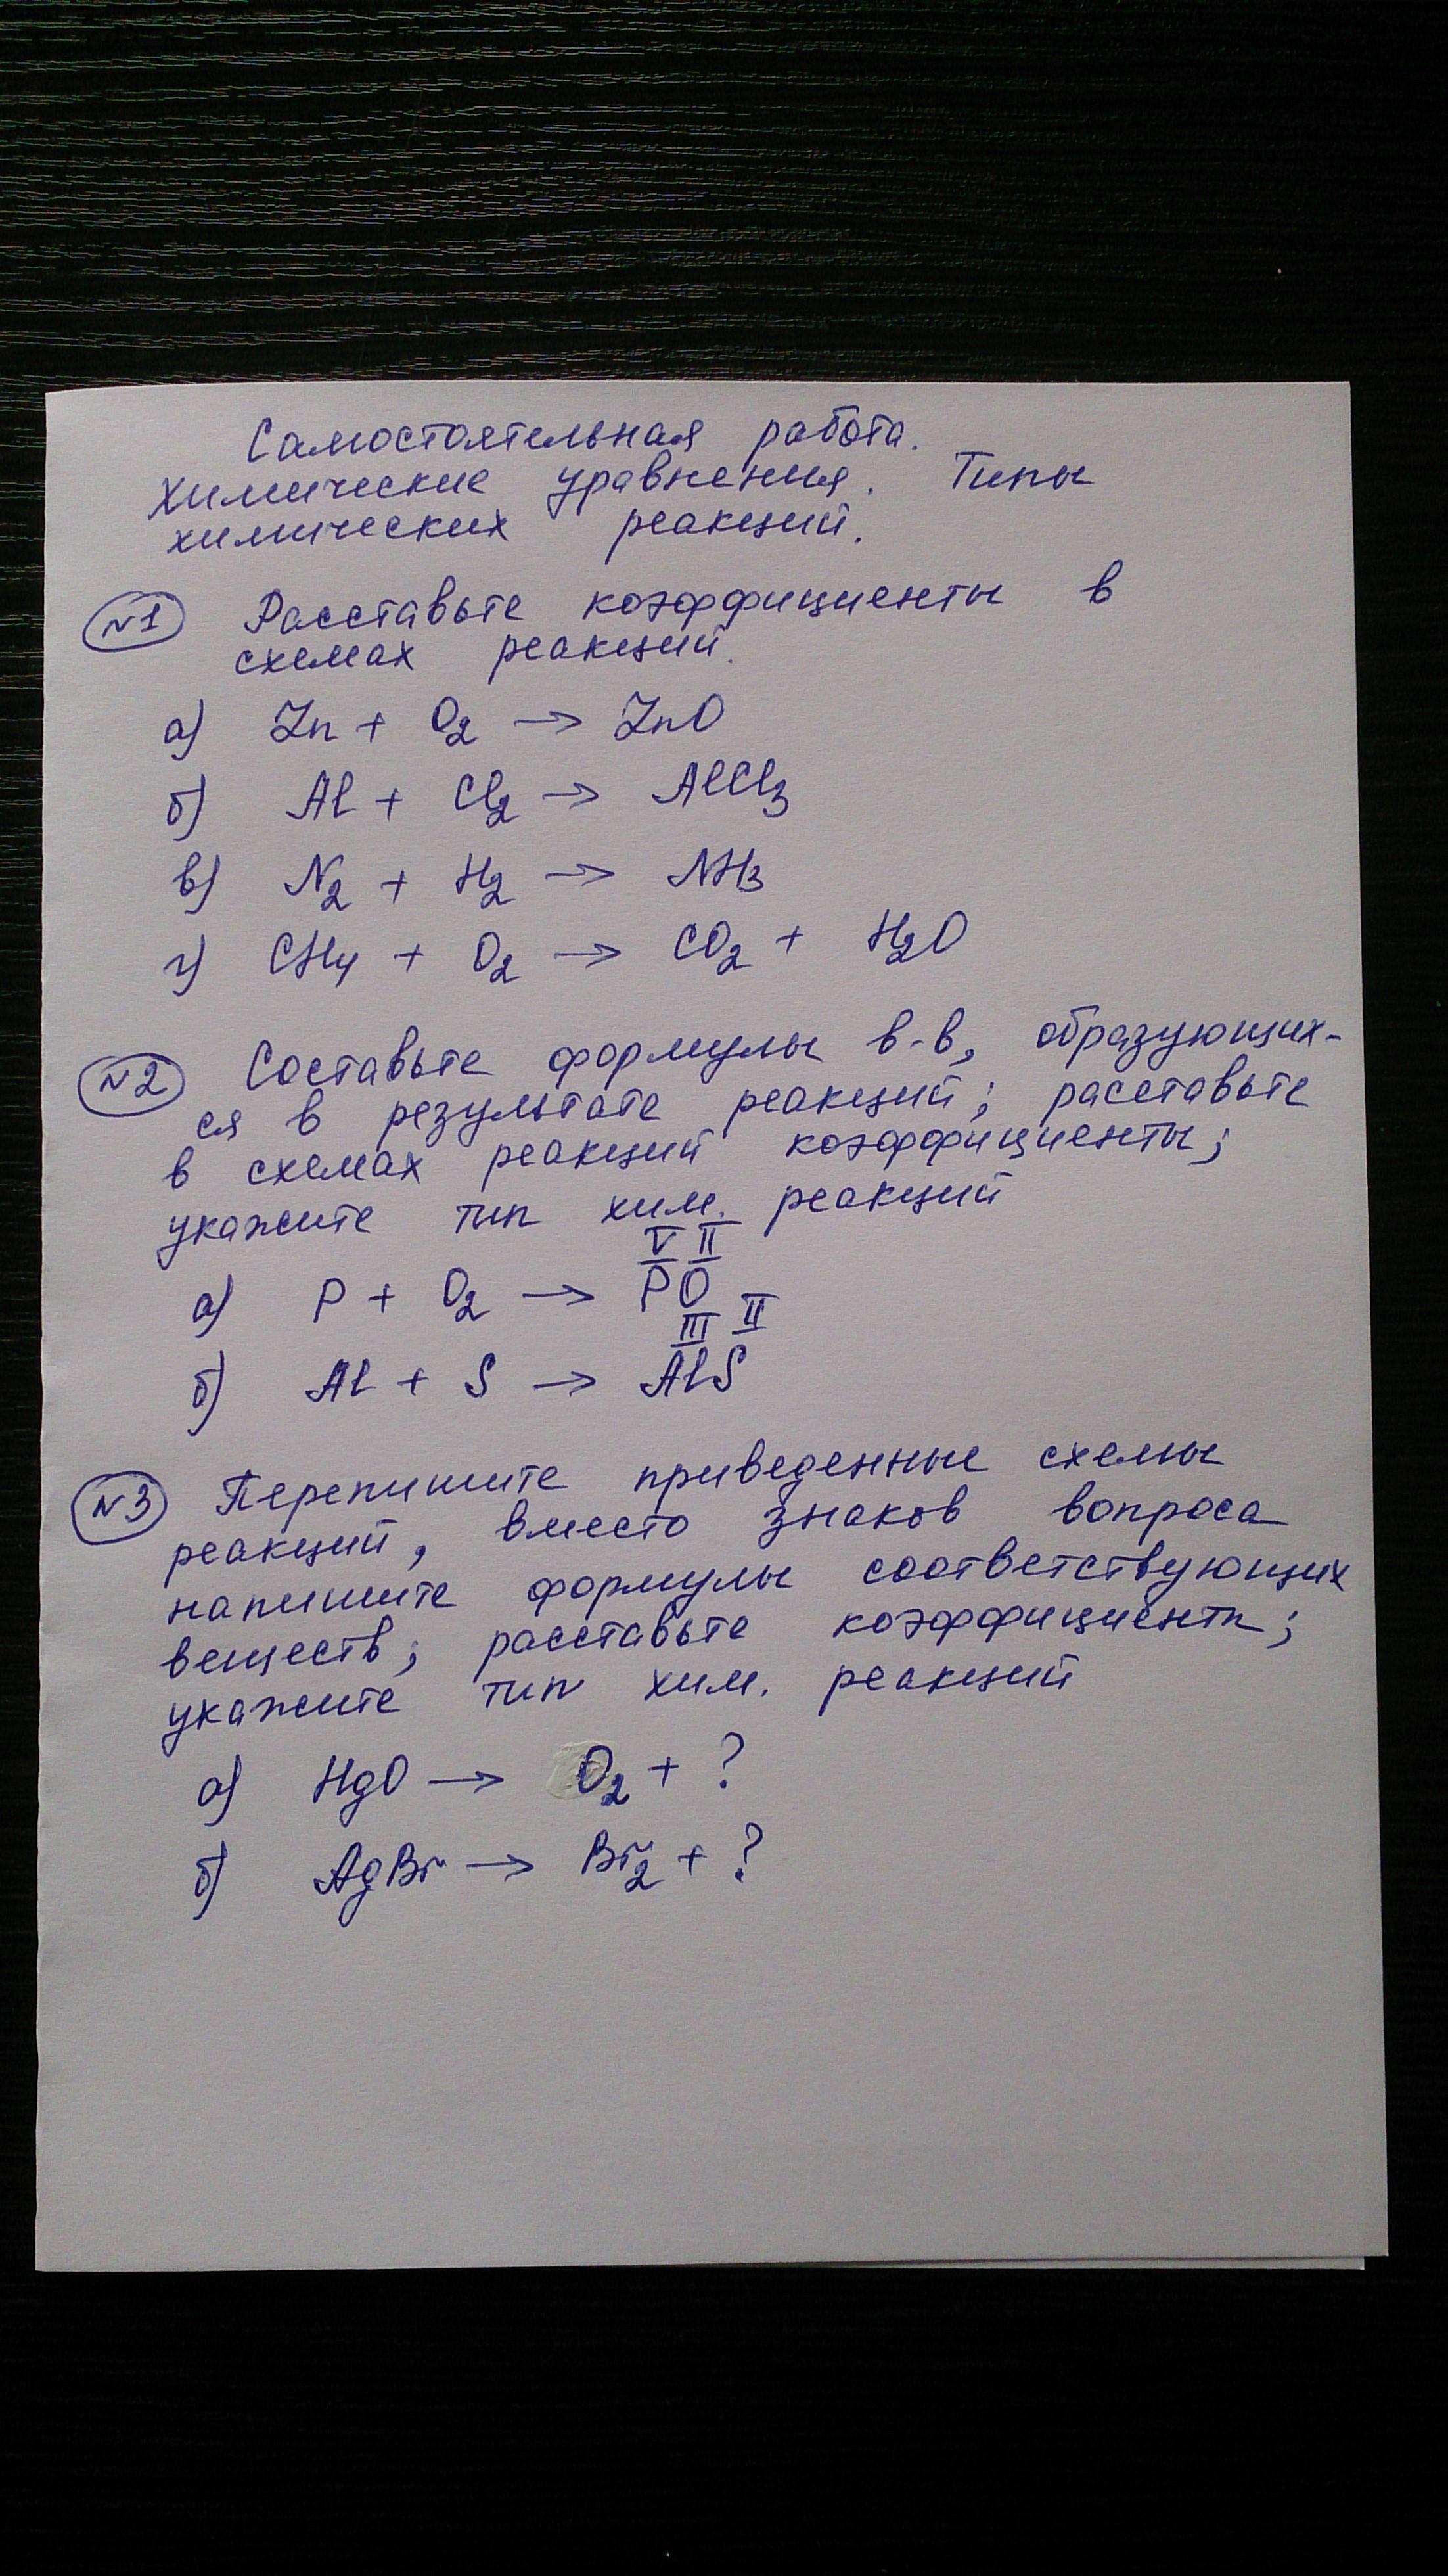 Самостоятельная работа.
Химические уравнения. Типы
химических реакций.
№1 Расставьте коэффициенты в
схемах реакций.
а) Zn + O2 → ZnO
б) Al + Cl2 → AlCl3
в) N2 + H2 → NH3
г) CH4 + O2 → CO2 + H2O
№2 Составьте формулы в-в, образующих-
ся в результате реакций; расставьте
в схемах реакций коэффициенты;
укажите тип хим. реакций
V II
а) P + O2 → PO
III II
б) Al + S → AlS
№3 Перепишите приведенные схемы
реакций, вместо знаков вопроса
напишите формулы соответствующих
веществ; расставьте коэффициенты;
укажите тип хим. реакций
а) HgO → O2 + ?
б) AgBr → Br2 + ?